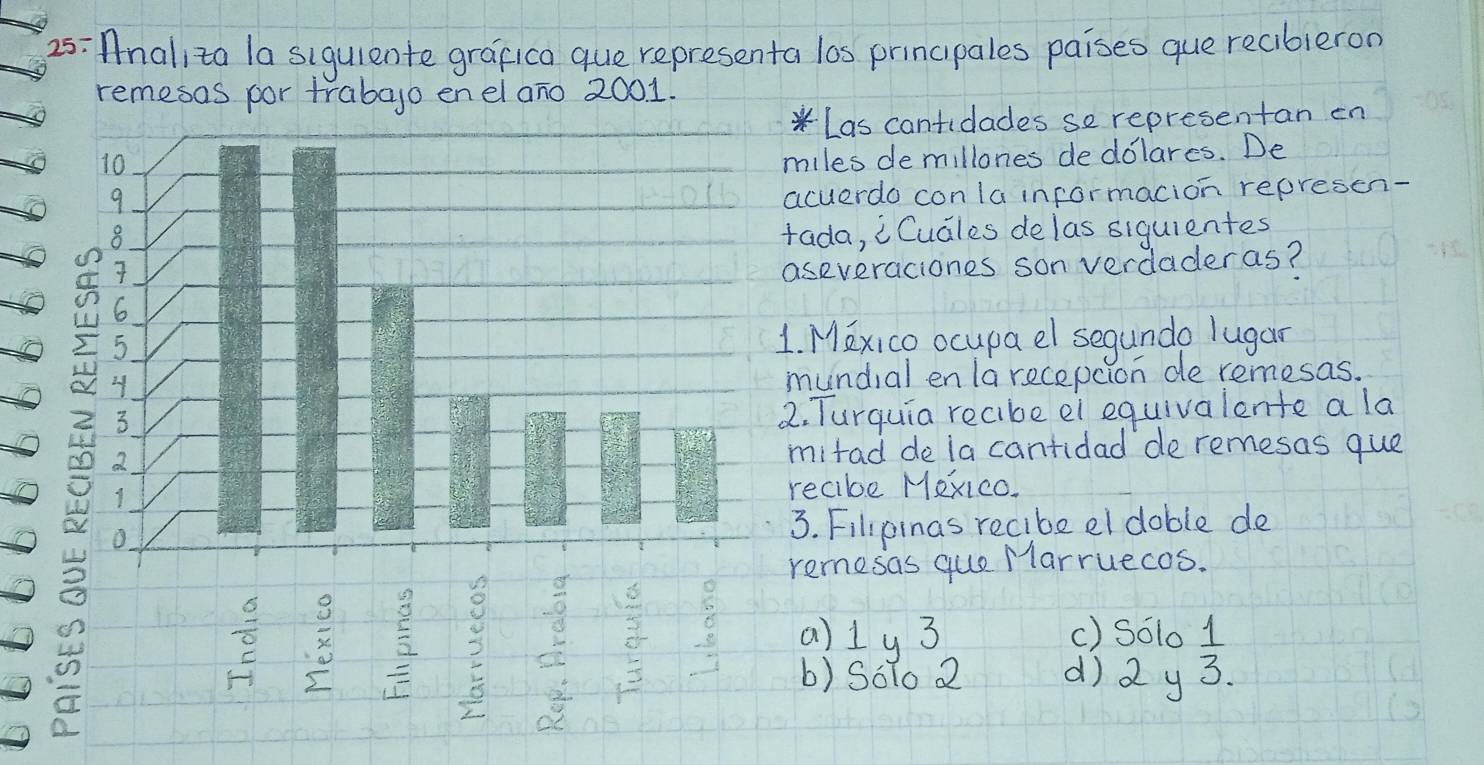 25.- Analiza la siguiente gráfica que representa los principales países que recibieron
remesas por trabajo en el año 2001.
* Las cantidades se representan en
miles de millones de dólares. De
acuerdo con la información represen-
tada, ¿Cuáles de las siguientes
aseveraciones son verdaderas?
1. México ocupa el segundo lugar
mundial en la recepción de remesas.
2. Turquía recibe el equivalente a la
mitad de la cantidad de remesas que
recibe México.
3. Filipinas recibe el doble de
remesas que Marruecos.
a) 1 y 3
b) Sólo 2
c) Sólo 1
d) 2 y 3.
PAÍSES QUE RECIBEN REMESAS
10
9
8
7
6
5
4
3
2
1
0
India
México
Filipinas
Marruecos
Rep. Arabia
Turquía
Líbano